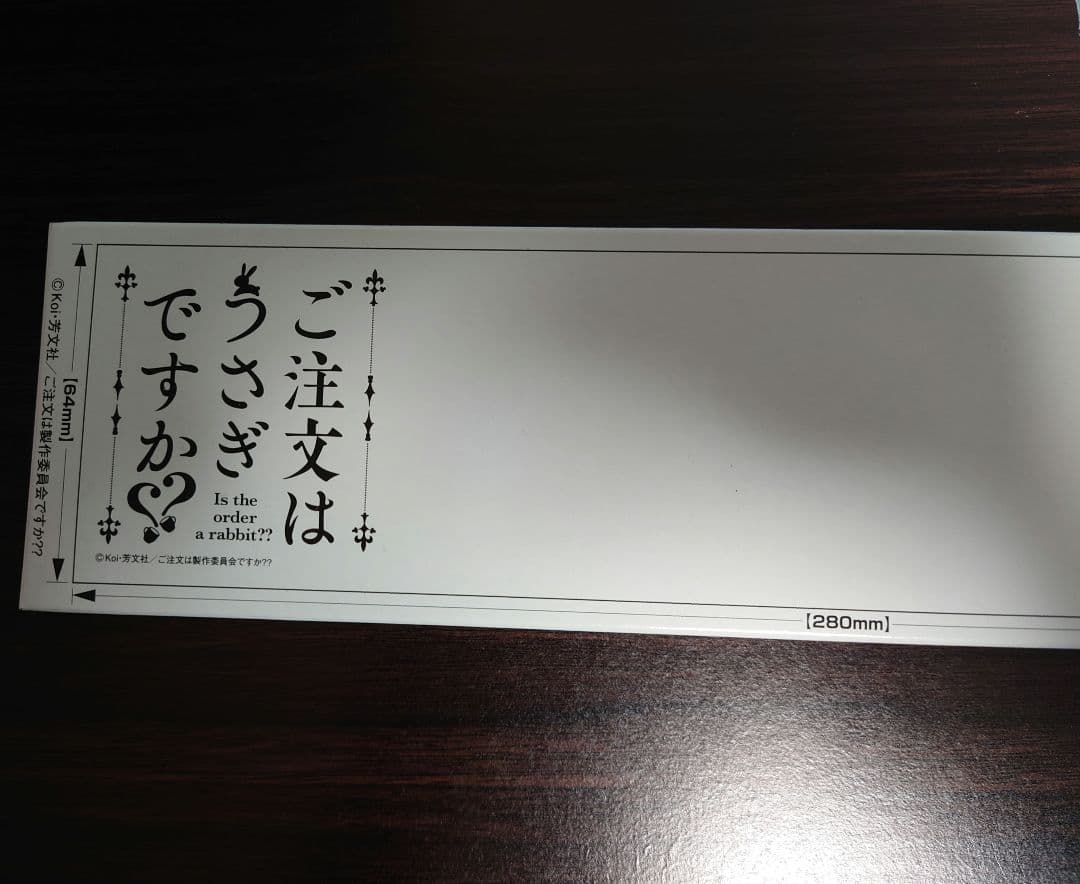 ご注文は
うさぎ
ですか??
Is the
order
a rabbit??
©Koi・芳文社／ご注文は製作委員会ですか??
【64mm】
©Koi・芳文社／ご注文は製作委員会ですか??
【280mm】